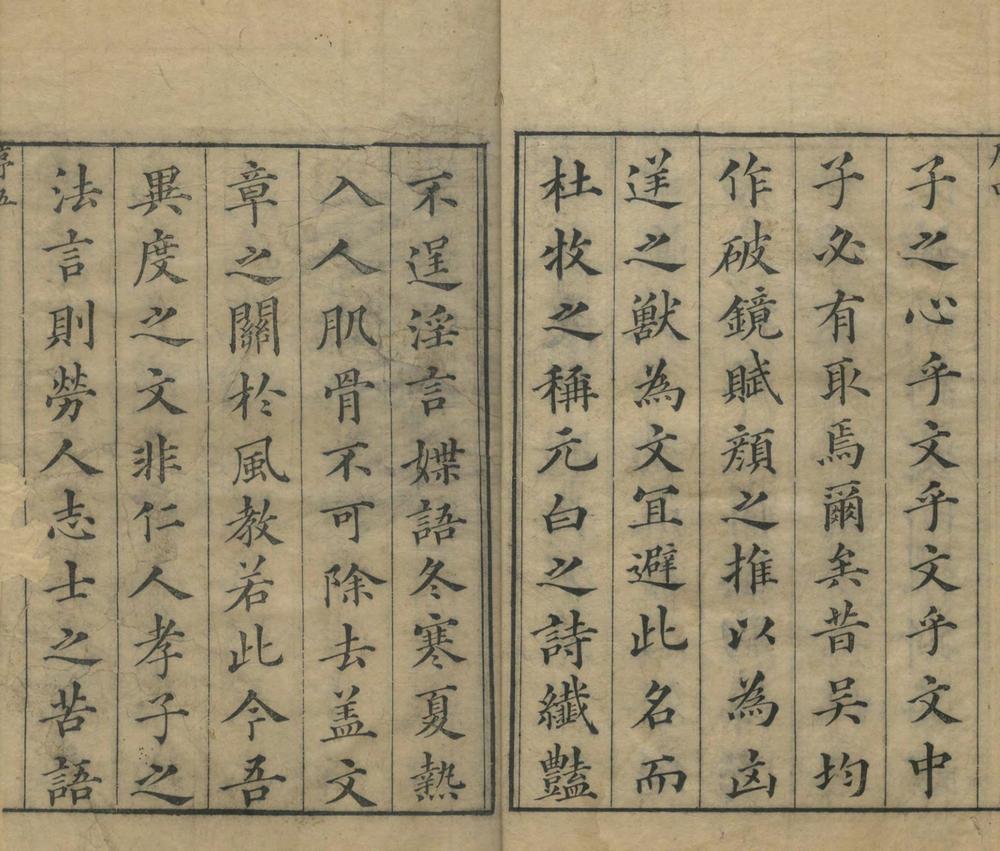 子之心乎文乎文乎文中
子必有取焉爾矣昔吴均
作破鏡賦顔之推以為凶
逆之獸為文冝避此名而
杜牧之稱元白之詩纎豔
不逞淫言媟語冬寒夏熱
入人肌骨不可除去盖文
章之關於風教若此今吾
異度之文非仁人孝子之
法言則勞人志士之苦語
序五